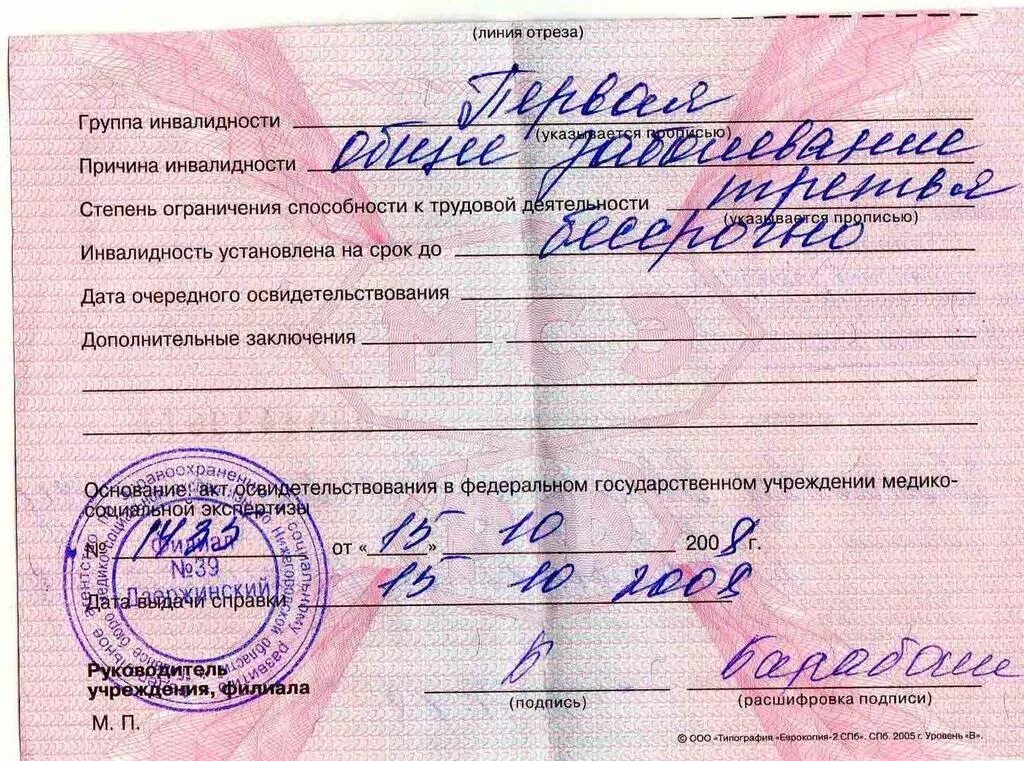 (линия отреза)
Группа инвалидности Первая
(указывается прописью)
Причина инвалидности общее заболевание
Степень ограничения способности к трудовой деятельности третья
(указывается прописью)
Инвалидность установлена на срок до бессрочно
Дата очередного освидетельствования
Дополнительные заключения
МСЭ
Основание: акт освидетельствования в федеральном государственном учреждении медико-
социальной экспертизы
№ 1433 от «15» 10 2008 г.
Филиал
№39
Дзержинский
Дата выдачи справки 15 10 2008
Руководитель
учреждения, филиала
(подпись)
(расшифровка подписи)
М. П.
© ООО «Типография «Еврокопия-2 СПб». СПб. 2005 г. Уровень «В».